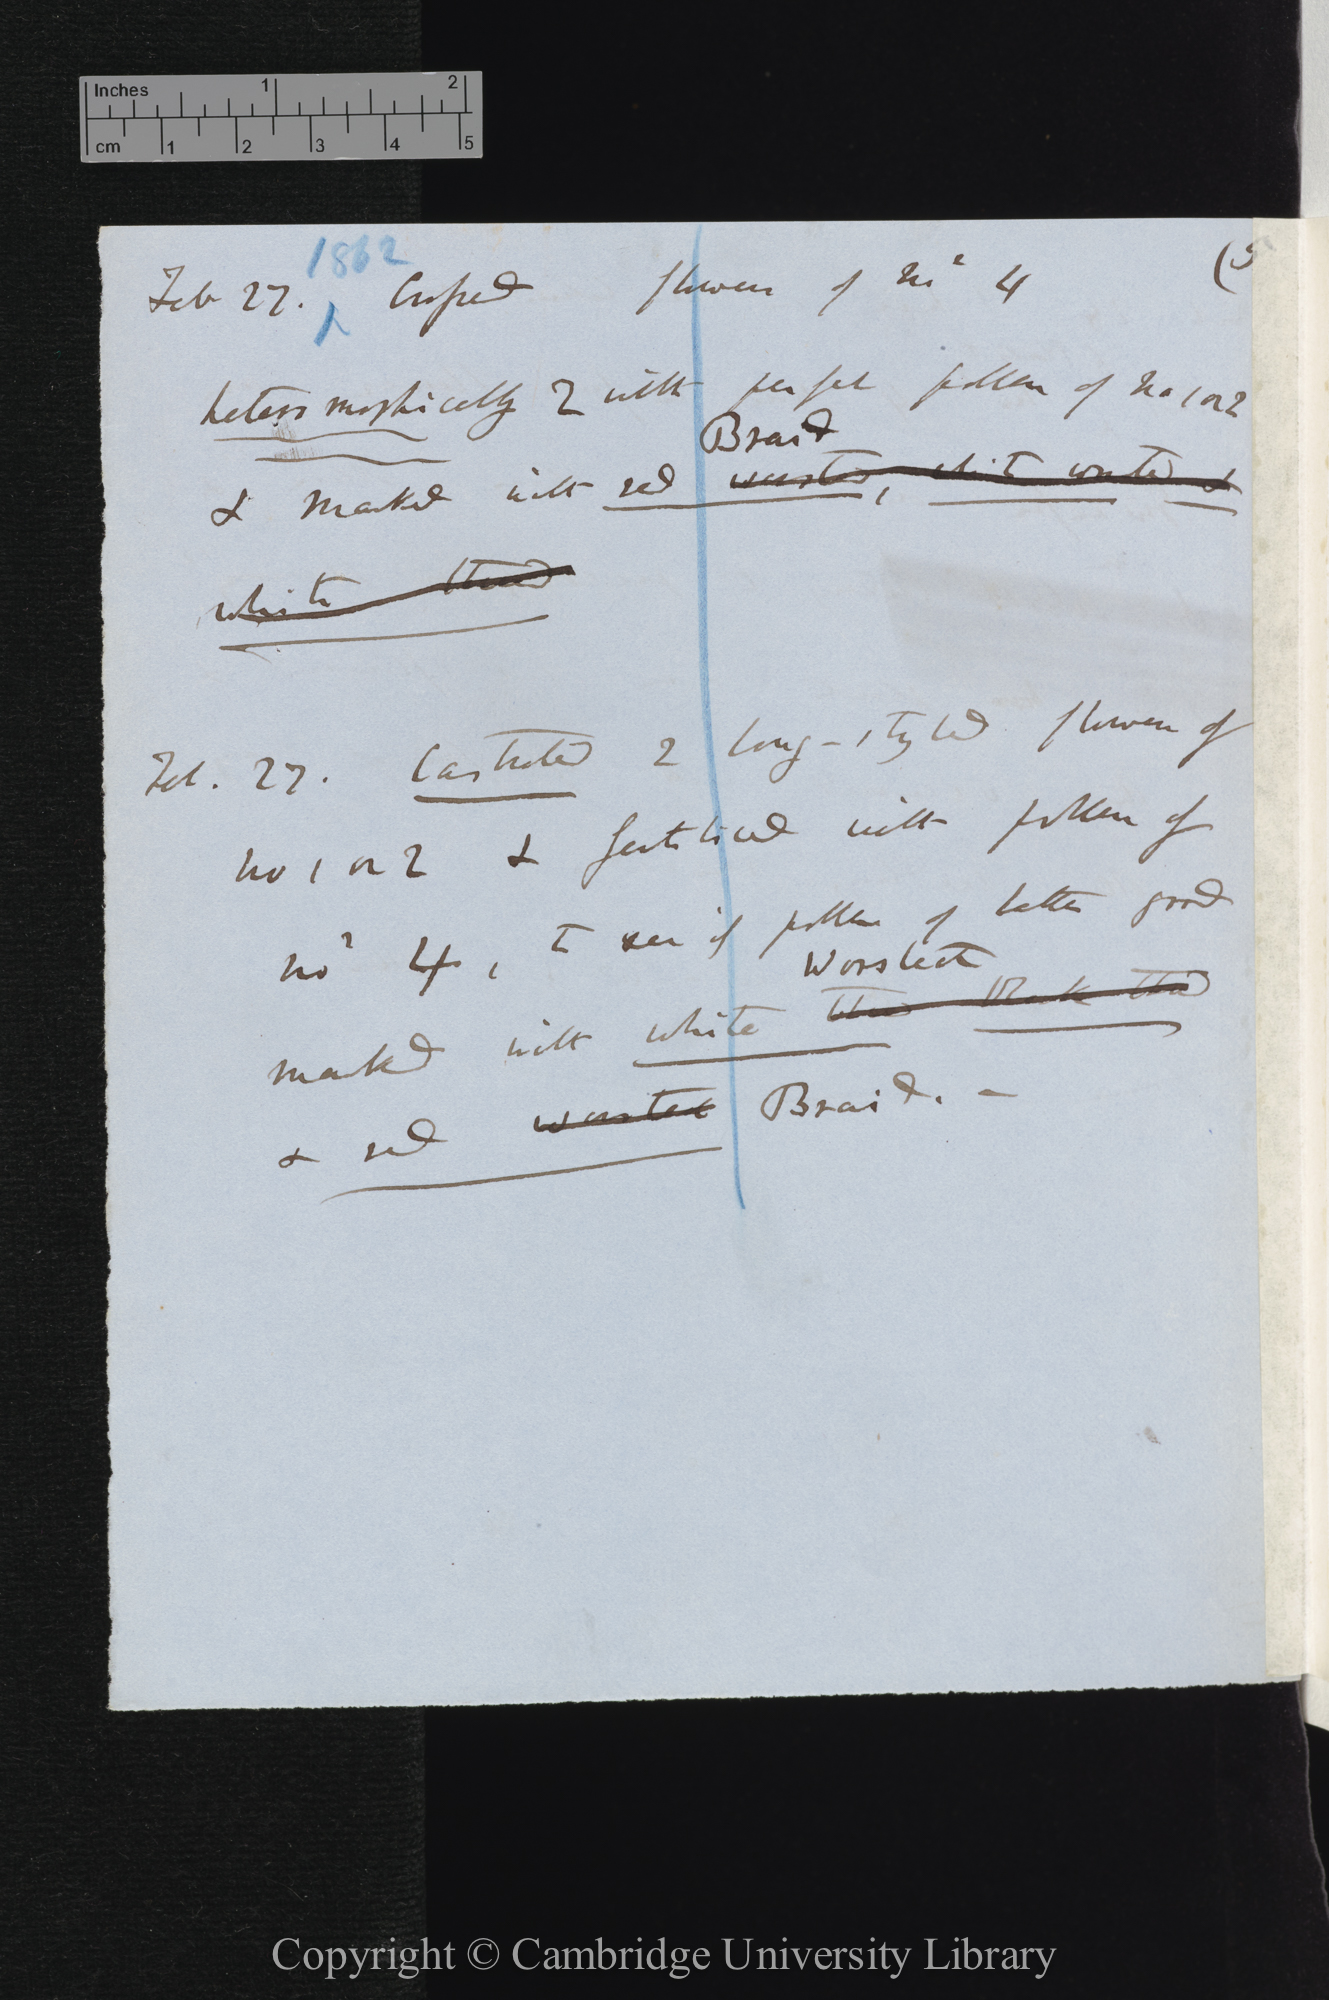 Inches 1 2
cm 1 2 3 4 5
(5
1862
Feb 27. ^ Crossed flowers of no 4
heteromorphically 2 with perfect pollen of no 1 or 2
Braid
& marked with red worsted, white worsted &
white thread
Feb. 27. Castrated 2 long-styled flowers of
no 1 or 2 & fertilised with pollen of
no 4, to see if pollen of latter good
Worsted
marked with white thread black thread
& red worsted Braid. —
Copyright © Cambridge University Library